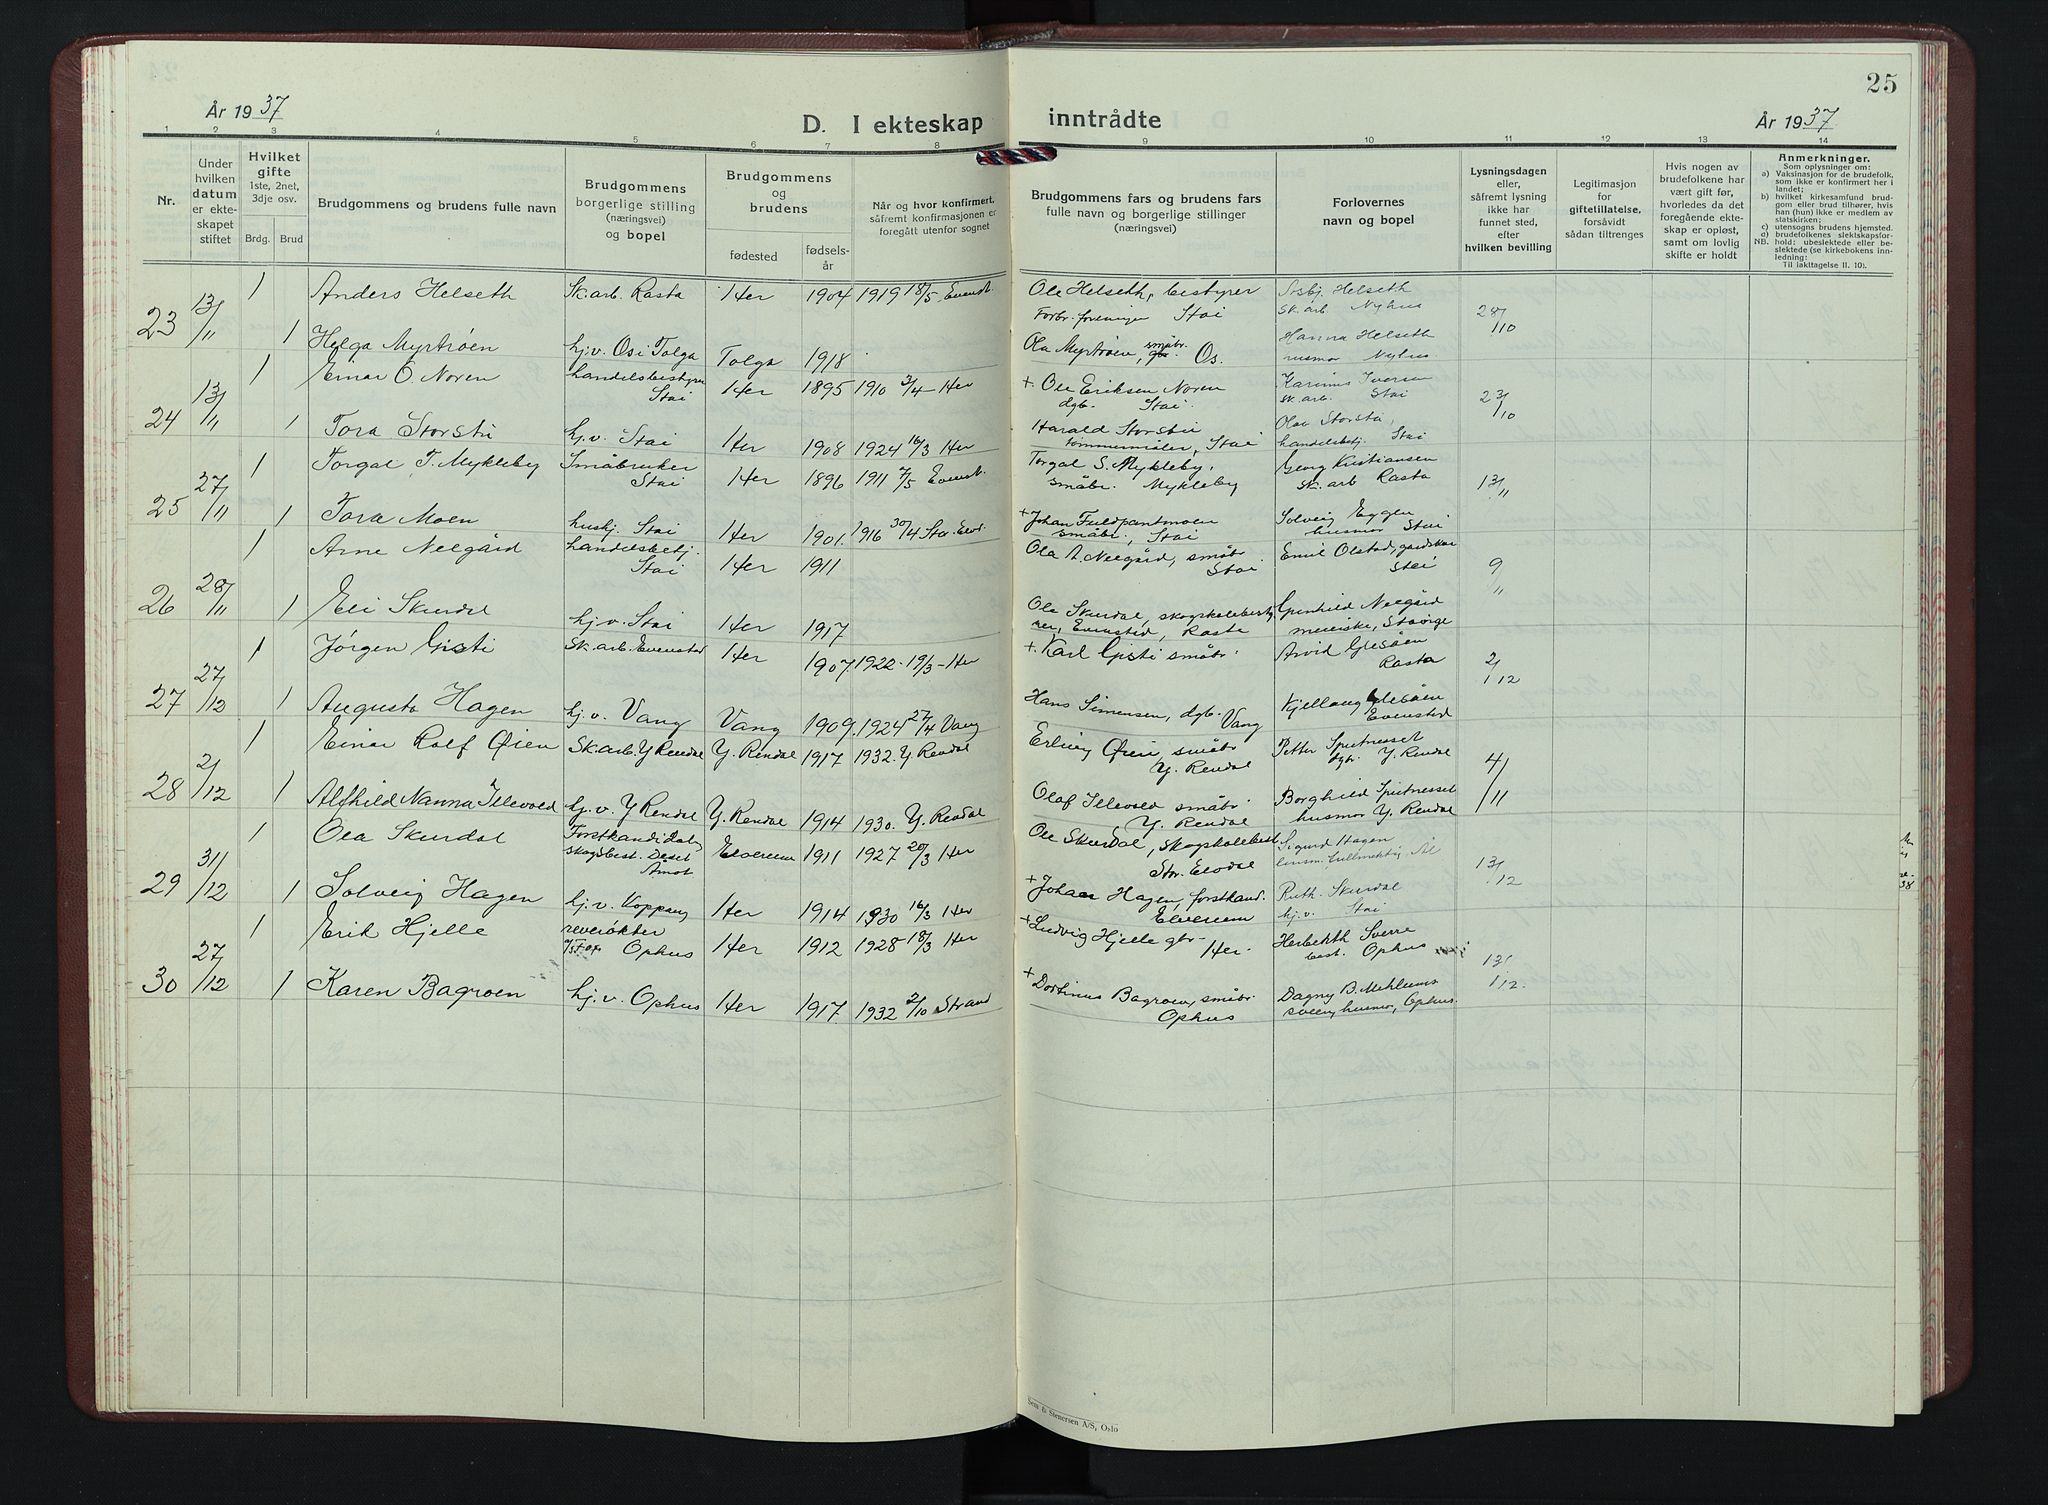 25
År 1937
D. I ekteskap inntrådte
År 1937
1 2 3 4 5 6 7 8 9 10 11 12 13 14
Nr.
Under hvilken datum er ekteskapet stiftet
Hvilket gifte 1ste, 2net, 3dje osv.
Brdg. Brud
Brudgommens og brudens fulle navn
Brudgommens borgerlige stilling (næringsvei) og bopel
Brudgommens og brudens
fødested
fødselsår
Når og hvor konfirmert, såfremt konfirmasjonen er foregått utenfor sognet
Brudgommens fars og brudens fars fulle navn og borgerlige stillinger (næringsvei)
Forlovernes navn og bopel
Lysningsdagen eller, såfremt lysning ikke har funnet sted, efter hvilken bevilling
Legitimasjon for giftetillatelse, forsåvidt sådan tiltrenges
Hvis nogen av brudefolkene har vært gift før, hvorledes da det foregående ekteskap er opløst, samt om lovlig skifte er holdt
Anmerkninger.
Som oplysninger om:
a) Vaksinasjon for de brudefolk, som ikke er konfirmert her i landet;
b) hvilket kirkesamfund brudgom eller brud tilhører, hvis han (hun) ikke er medlem av statskirken;
c) utensogns brudens hjemsted.
d) brudefolkenes slektskapsforhold; ubeslektede eller beslektede (se kirkebokens innledning:
NB.
Til iakttagelse II. 10).
23 13/11 1 Anders Helseth Sk.arb. Rasta Her 1904 1919 18/5 Evenst. Ole Helseth, bestyrer Forbr. foreningen Stai Sk. arb Nyhus 28/10
1 Helga Myrtrøen hj.v. Os i Tolga Tolga 1918 Ola Myrtrøen, småbr. gbr. Os. Hanna Helseth husmor Nyhus
24 13/11 1 Einar O. Noren handelsbestyrer Stai Her 1895 1910 3/4 - Her + Ole Eriksen Noren dgb. Stai. Karinus Iversen sk. arb. Stai 23/10
1 Tora Storsti hj.v. Stai Her 1908 1924 16/3 Her Harald Storsti tømmermåler, Stai Olav Storsti, handelsbetj. Stai
25 27/11 1 Torgal T. Mykleby Småbruker Stai Her 1896 1911 7/5 Evenst. Torgal S. Mykleby, småbr. Mykleby Georg Kristiansen sk. arb Rasta 13/11
1 Tora Moen husbj. Stai Her 1901. 1916 30/4 Stor-Elvd. + Johan Fuldpantmoen småbr., Stai Solveig Eggen husmor Stai
26 28/11 1 Arne Neegård handelsbetj. Stai Her 1911 Ola A. Neegård, småbr Stai Emil Olstad, gardskar Stai 9/11
1 Eli Skurdal hj.v. Stai Her 1917 Ole Skurdal, skogskolebestyrer, Evenstad, Rasta Gunhild Neegård meieiske,
27 27/12 1 Jørgen Gisti Sk. arb. Evenstad Her 1907. 1922 - 19/3 - Her + Karl Gisti småbr. Arvid Rasta 2/12
1 Augusta Hagen hj.v. Vang Vang 1909. 1924 27/4 Vang Hans Simensen, dgb. Vang Kjellaug Evenstad
28 2/12 1 Einar Rolf Øien Sk.arb. Y. Rendal Y. Rendal 1917 1932. Y. Rendal Erling Øien småbr Y. Rendal Petter Spetnesset dgbr. Y. Rendal 4/11
1 Alfhild Nanna Illevold hj.v. Y Rendal Y. Rendal 1914 1930. Y. Rendal Olaf Illevold småbr. Y. Rendal Borghild Spetnesset husmor Y. Rendal
29 31/12 1 Ola Skurdal Forstkandidat, skogsbest. Deset Åmot Elverum 1911 1927 20/3 Her Ole Skurdal, Skogskolebest Stor-Elvdal Sigurd Hagen lensm. fullmektig 13/12
1 Solveig Hagen hj.v. Koppang Her 1914 1930 16/3 Her + Johan Hagen, forstkand. Elverum Ruth Skurdal hj.v. Stai
30 27/12 1 Erik Hjelle reverøkter A/S Fox Ophus Her 1912 1928 18/3 Her + Ludvig Hjelle gbr. Her. Sverre best. Ophus 13/12.
1 Karen Bagroen hj.v. Ophus Her 1917. 1932 2/10 Strand + Dortinus Bagroen, småbr. Ophus Dagny B. Mehlumssveen, husmor, Ophus.
Sem & Stenersen A/S, Oslo